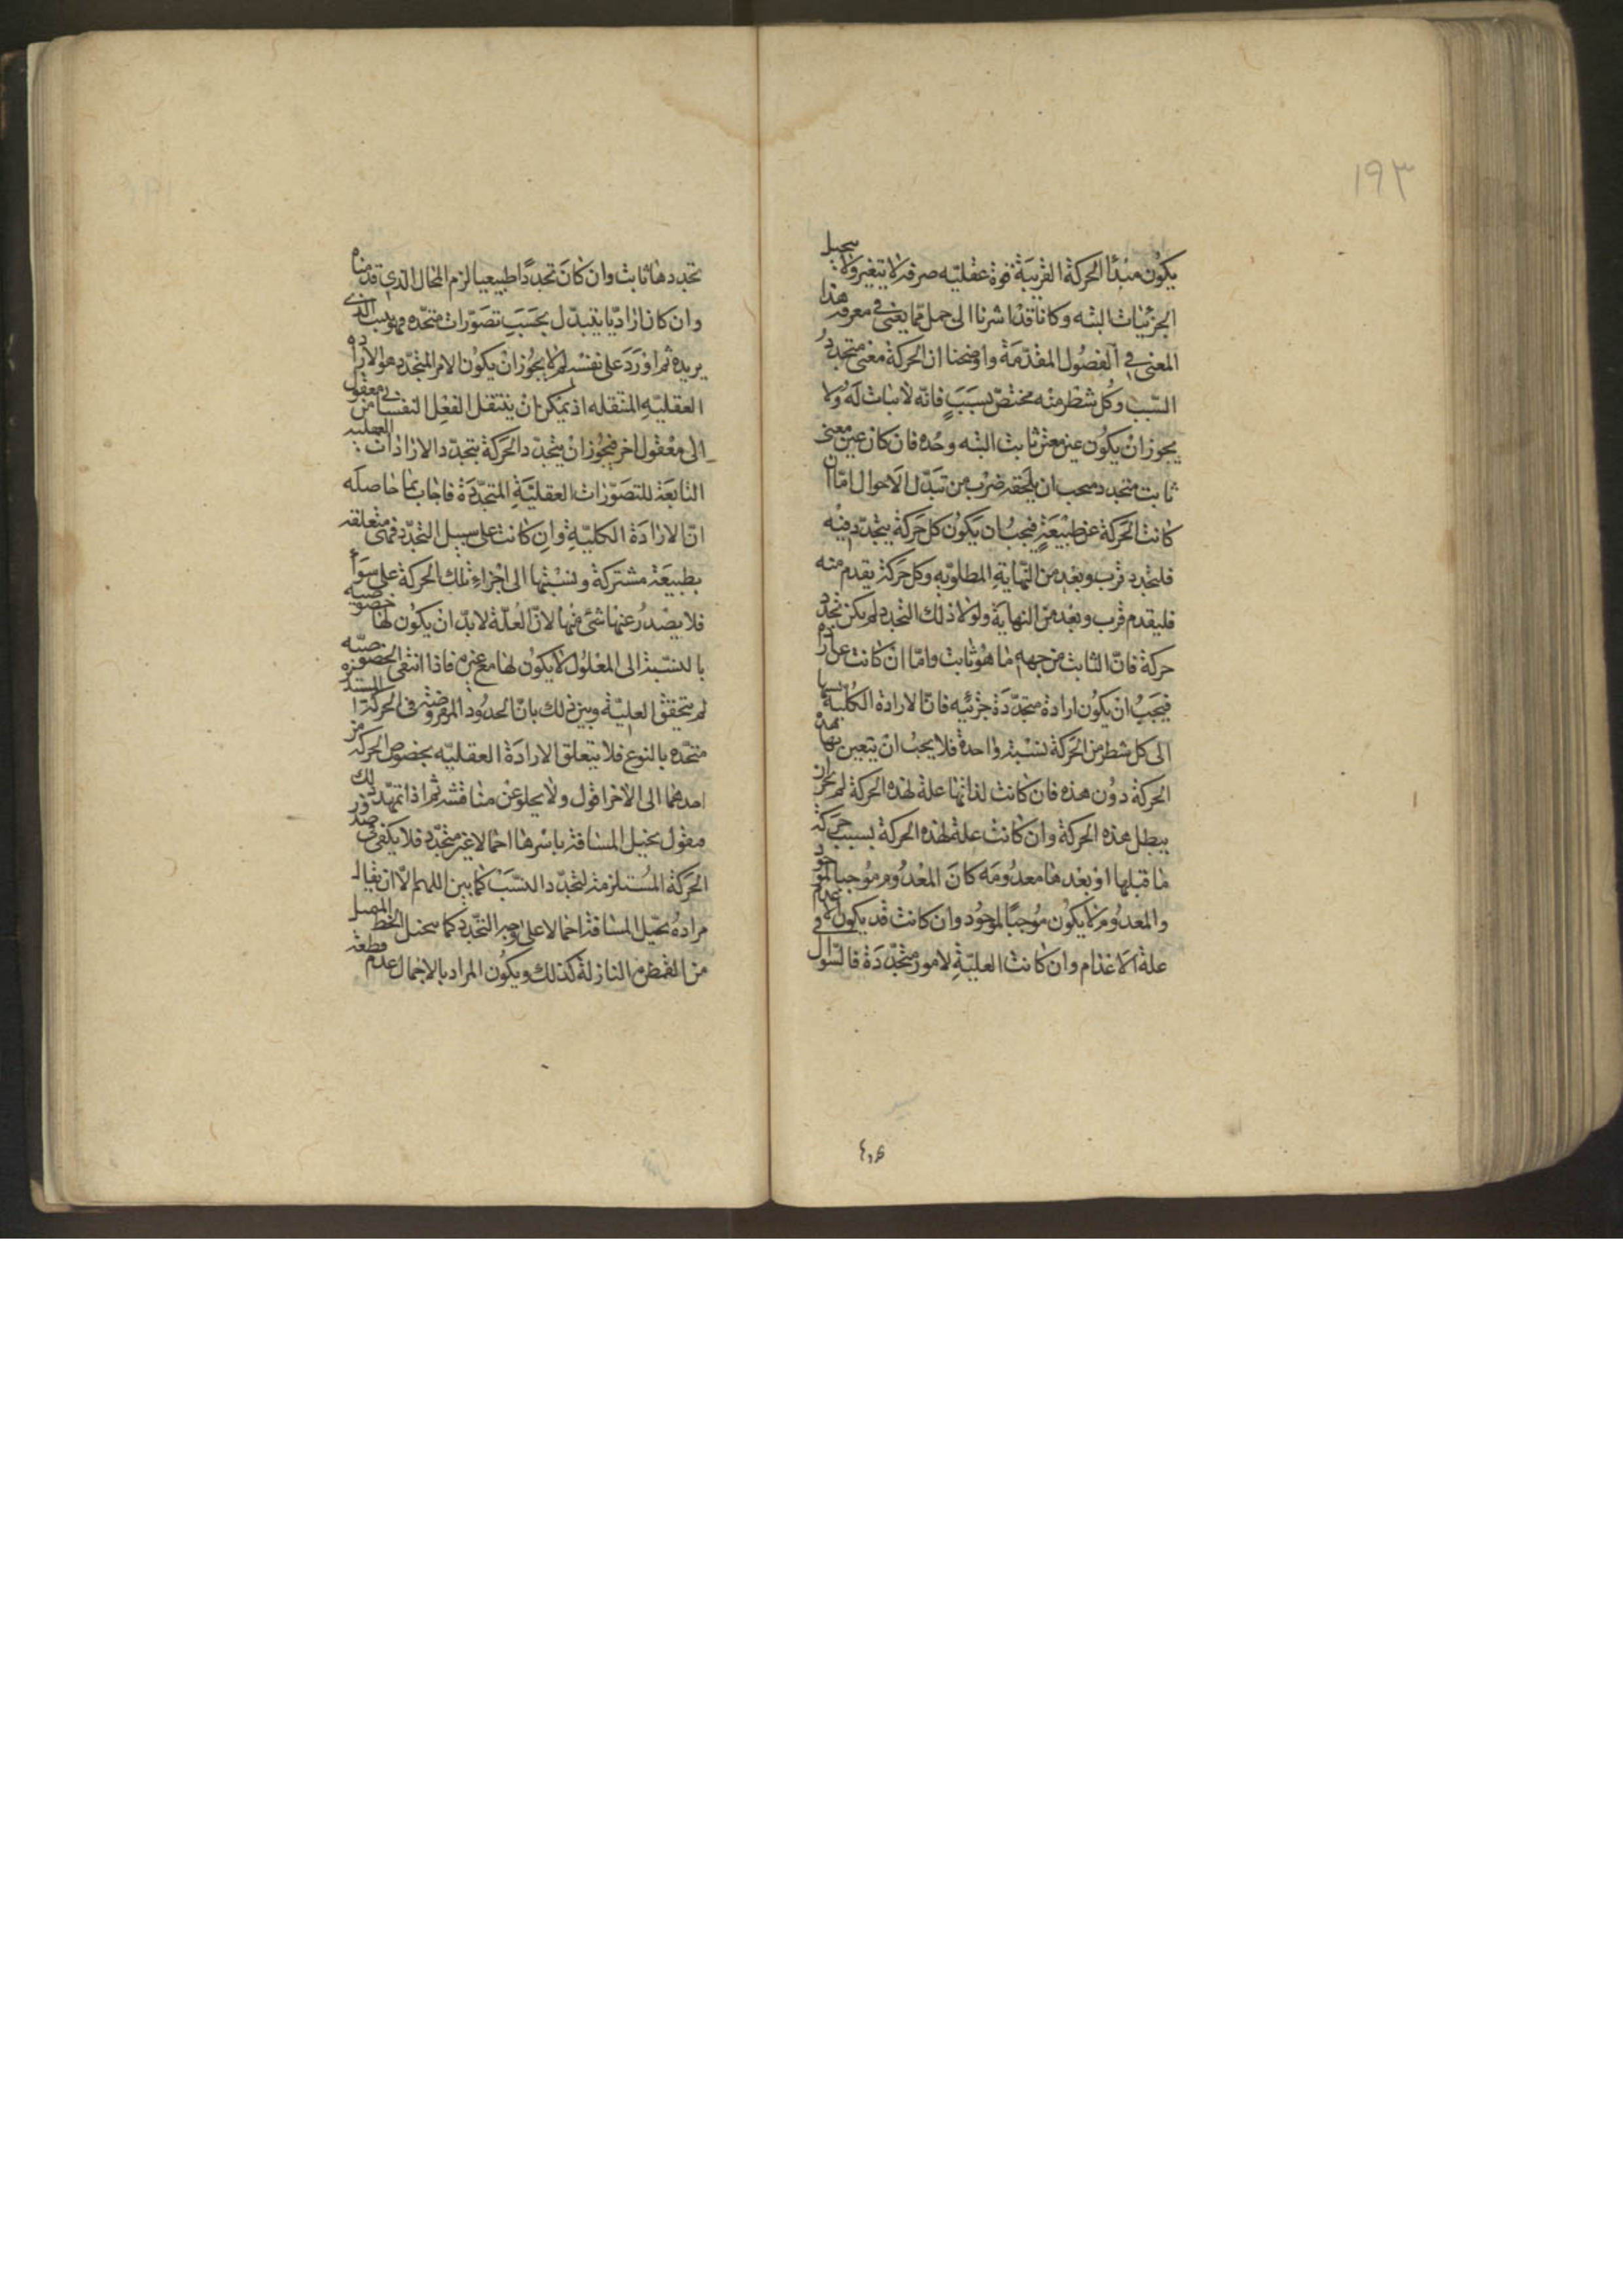 ١٩٣
يكون مبدأ الحركة القريبة قوة عقليه صرفه لا يتغير ولا يتخيل
الجزئيات البته وكانا قد اشرنا الى جمل مما يعنى في معرفة هذا
المعنى في الفصول المقدمة واوضحنا ان الحركة معنى متجدد
النسب وكل شطر منه مختص بسبب فانه لا ثبات له ولا
يجوز ان يكون عن معنى ثابت البته وحده فان كان عن معنى
ثابت متجدد فيجب ان يلحقه ضرب من تبدل الاحوال اما ان
كانت الحركة عن طبيعة فيجب ان يكون كل حركة يتجدد فيه
فلتجدد قرب وبعد من النهاية المطلوبه وكل حركة يقدم منه
فليقدم قرب وبعد من النهاية ولولا ذلك التجدد لم يكن تجدد
حركة فان الثابث من جهه ما هو ثابت واما ان كانت عن ارادة
فيجب ان يكون ارادة متجددة جزئيه فان الارادة الكلية نسبتها
الى كل شطر من الحركة نسبة واحدة فلا يجب ان يتعين بها هذه
الحركة دون هذه فان كانت لذاتها علة لهذه الحركة لم يجز ان
يبطل هذه الحركة وان كانت علة لهذه الحركة بسبب حركة
ما قبلها او بعدها معدومه كان المعدوم موجبا لموجود
والمعدوم لا يكون موجبا لموجود وان كانت قد يكون الاعدام
علة الاعدام وان كانت العلية لامور متجددة فالسؤال في
تجددها ثابت وان كان تجددا طبيعيا لزم المحال الذي قدمناه
وان كان اراديا يتبدل بحسب تصورات متجدده فهو يثبت الذى
يريده ثم اورد على نفسه لم لا يجوز ان يكون الامر المتجدد هو الارادة
العقلية المتنقله اذ يمكن ان ينتقل العقل النفسانى من معقول
الى معقول اخر فيجوز ان يتجدد الحركة بتجدد الارادات العقلية
التابعة للتصورات العقلية المتجددة فاجاب بما حاصله
ان الارادة الكلية وان كانت على سبيل التجدد فهى متعلقه
بطبيعة مشتركة ونسبتها الى اجزاء تلك الحركة على سواء
فلا يصدر عنها شئ منها لان العلة لا بد ان يكون لها خصوصية
بالنسبة الى المعلول لا يكون لها مع غيره فاذا انتفى الخصوصيه
لم يتحقق العلية وبين ذلك بان الحدود المفروضة في الحركة المستديرة
متحده بالنوع فلا يتعلق الارادة العقليه بخصوص الحركة من
احدهما الى الاخر اقول ولا يخلو عن مناقشه ثم اذا تمهد ذلك
فيقول تخيل المسافة باسرها اجمالا غير متجدد فلا يكفى فى صدور
الحركة المستلزمة لتجدد النسب كما بين اللهم الا ان يقال
مراده تخيل المسافة اجمالا على وجه التجدد كما يتخيل الخط المتصل
من القطرة النازلة كذلك ويكون المراد بالاجمال عدم قطعة